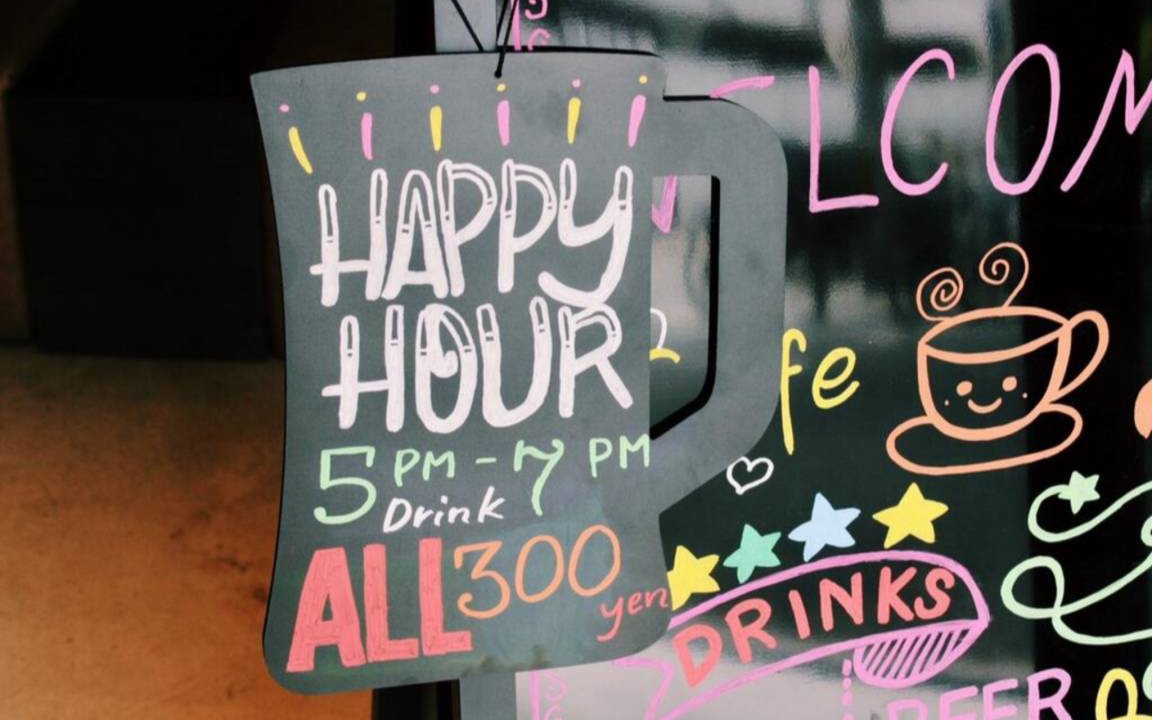 HAPPY
HOUR
5 PM - 7 PM
Drink
ALL 300
yen
LCOM
fe
DRINKS
BEER